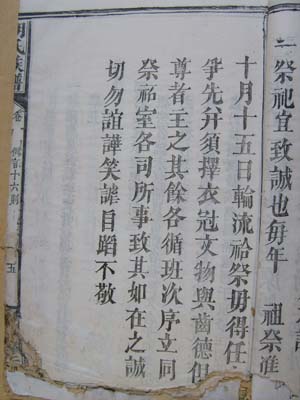 一祭祀宜致誠也每年 祖祭准
十月十五日輪流祫祭毋得任
爭先并須擇衣冠文物與齒德俱
尊者主之其餘各循班次序立同
祭祫室各司所事致其如在之誠
切勿諠譁笑謔自蹈不敬
氏族譜
卷
十六則
五